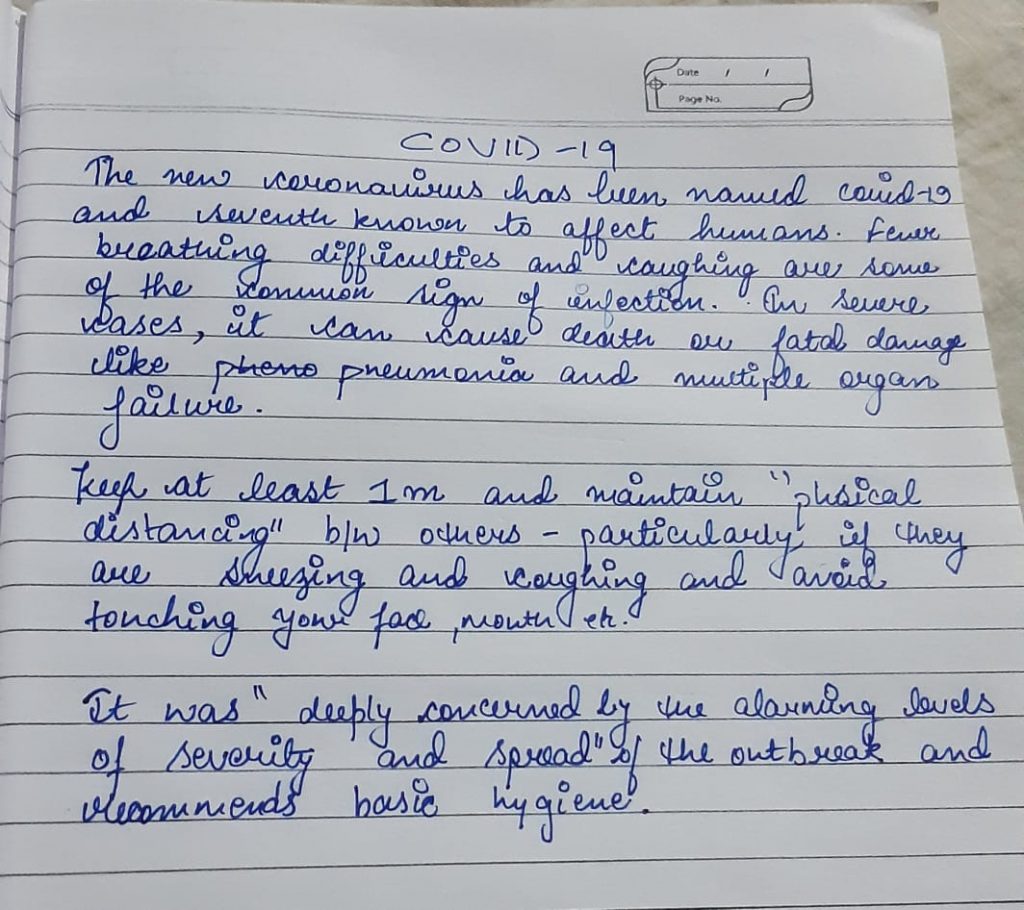 Date / /
Page No.
COVID-19
The new coronavirus has been named covid-19
and seventh known to affect humans. Fever
breathing difficulties and coughing are some
of the common sign of infection. In severe
cases, it can cause death or fatal damage
like pheno pneumonia and multiple organ
failure.
Keep at least 1m and maintain "phsical
distancing" b/w others - particularly if they
are sneezing and coughing and avoid
touching your face, mouth etc.
It was "deeply concerned by the alarming levels
of severity and spread" of the outbreak and
recommends basic hygiene.